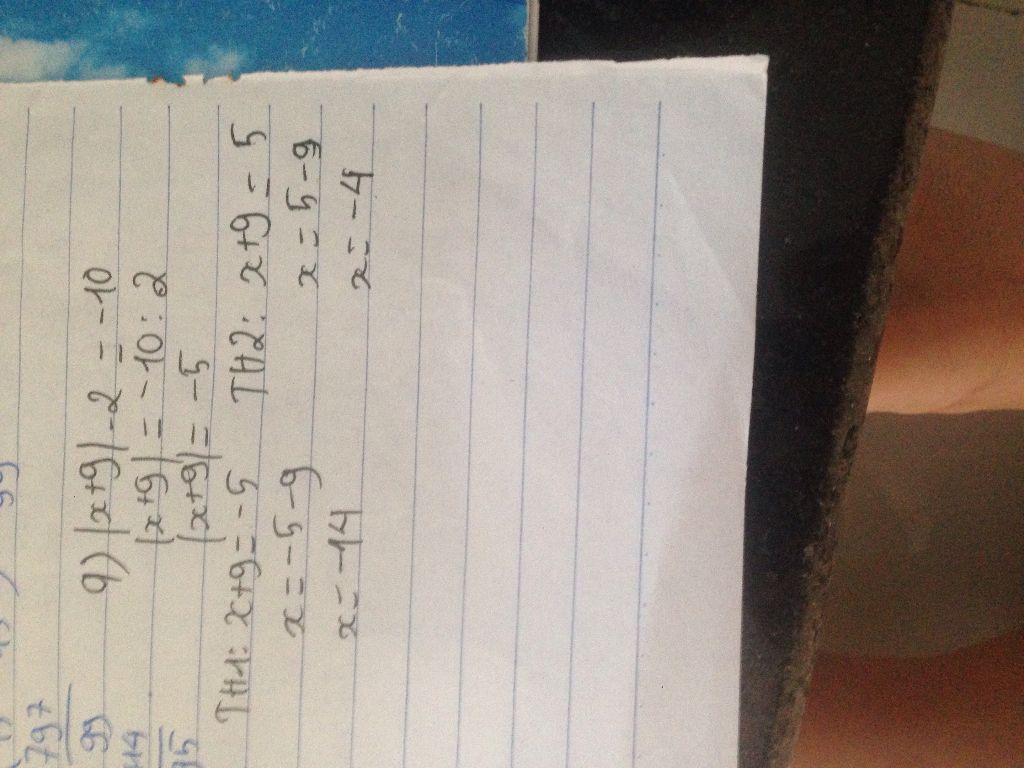 9) |x+9|.2 = -10
|x+9| = -10 : 2
|x+9| = -5
TH1: x+9 = -5 TH2: x+9 = 5
x = -5-9 x = 5-9
x = -14 x = -4
797
99